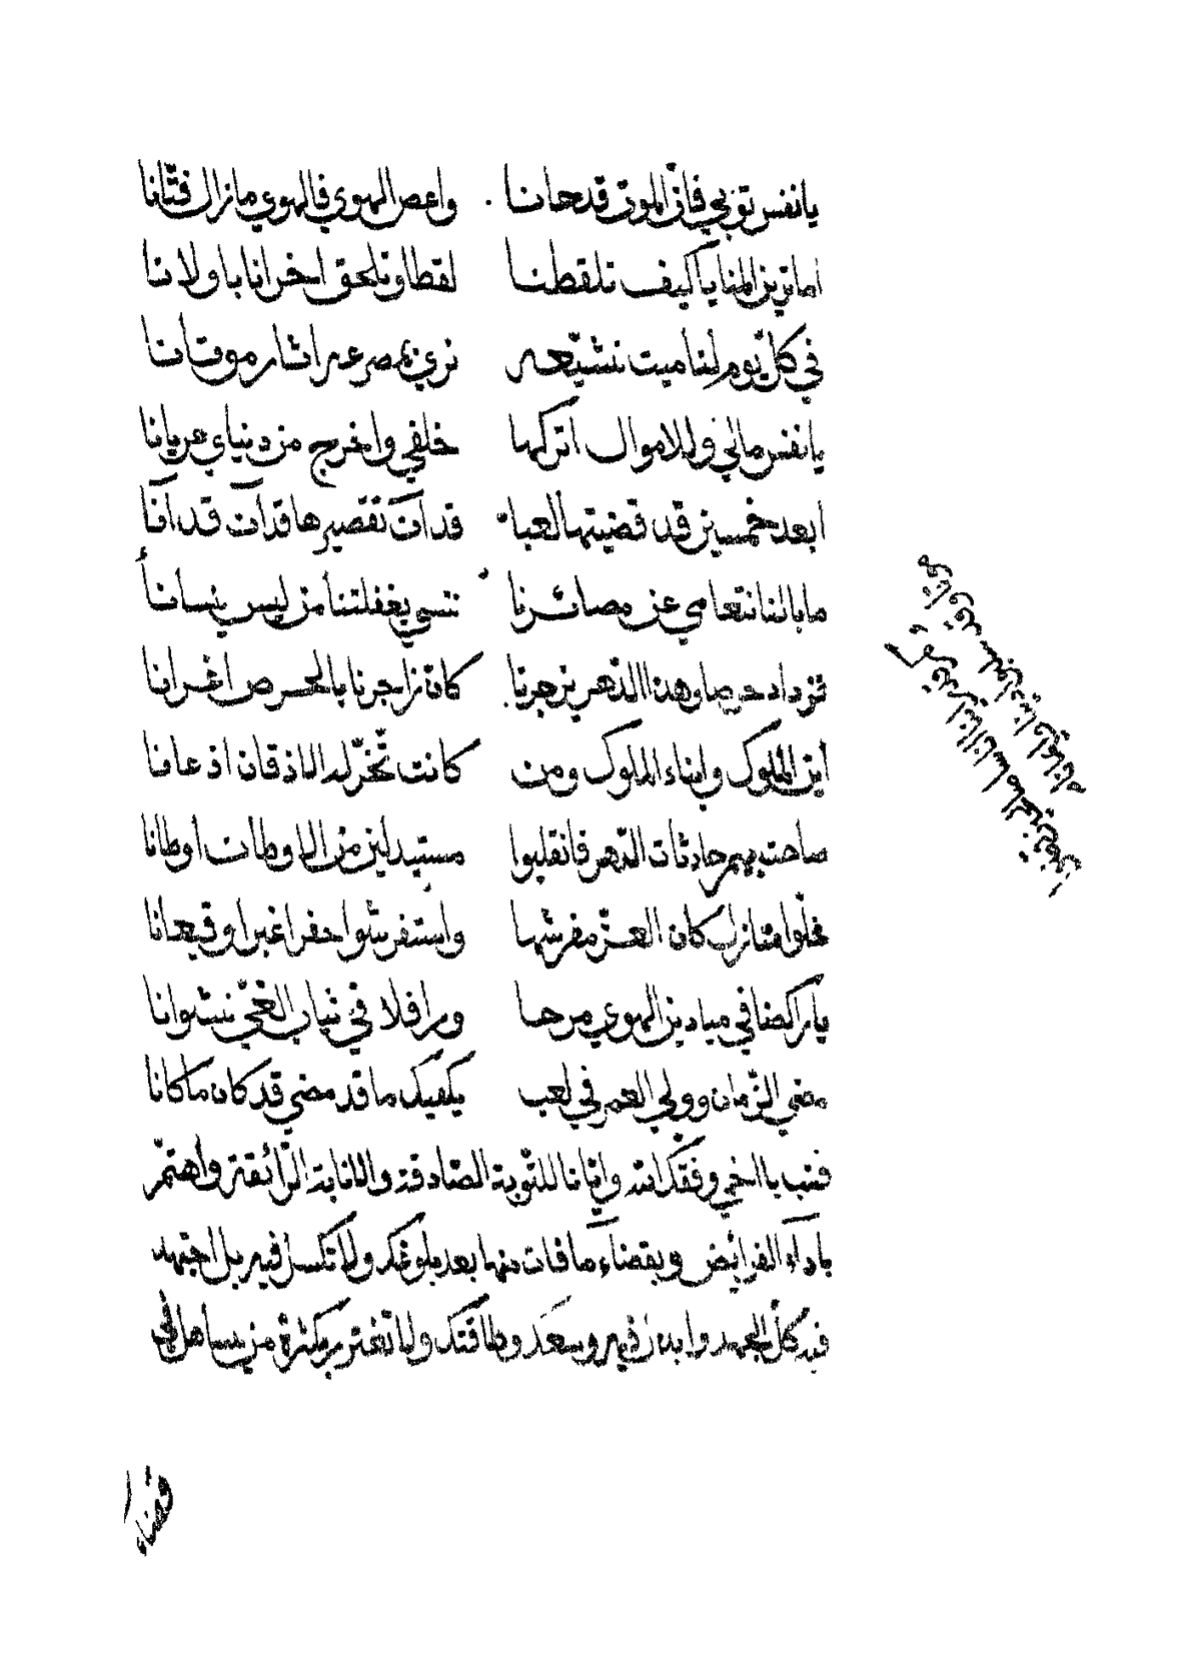 يا نفس توبي فان الموت قد حانا واعص الهوي فالهوي ما زال فتّانا
اما ترين المنايا كيف تلقطنا لقطا وتلحق اخرانا باولانا
في كلّ يوم لنا ميت نشيّعه نري بمصرعه اثار موتانا
يا نفس مالي وللاموال اتركها خلفي واخرج من دنياي عريانا
ابعد خمسين قد قضيتها لعبا قد آن تقصيرها قد آن قد آنا
ما بالنا نتعامي عن مصائرنا ننسي بغفلتنا من ليس ينسانا
نزداد حرصا وهذا الدّهر يزجرنا كان زاجرنا بالحرص اغرانا
اين الملوك وابناء الملوك ومن كانت تخرّ له الاذقان اذعانا
صاحت بهم حادثات الدّهر فانقلبوا مستبدلين من الاوطان اوطانا
خلّوا منازل كان العزّ مفرشها واستفرشوا حفرا غبرا وقيعانا
يا راكضا في ميادين الهوي مرحا ورافلا في ثياب الغيّ نشوانا
مضي الزّمان وولي العمر في لعب يكفيك ما قد مضي قد كان ما كانا
فتب يا اخي وفقك الله وايّانا للتّوبة الصّادقة والانابة الرّائقة واهتمّ
باداء الفرائض وبقضاء ما فات منها بعد بلوغك ولا تكسل فيه بل اجتهد
فيه كلّ الجهد وابذل فيه وسعك وطاقتك ولا تغتر بكثرة من يساهل في
قضاء